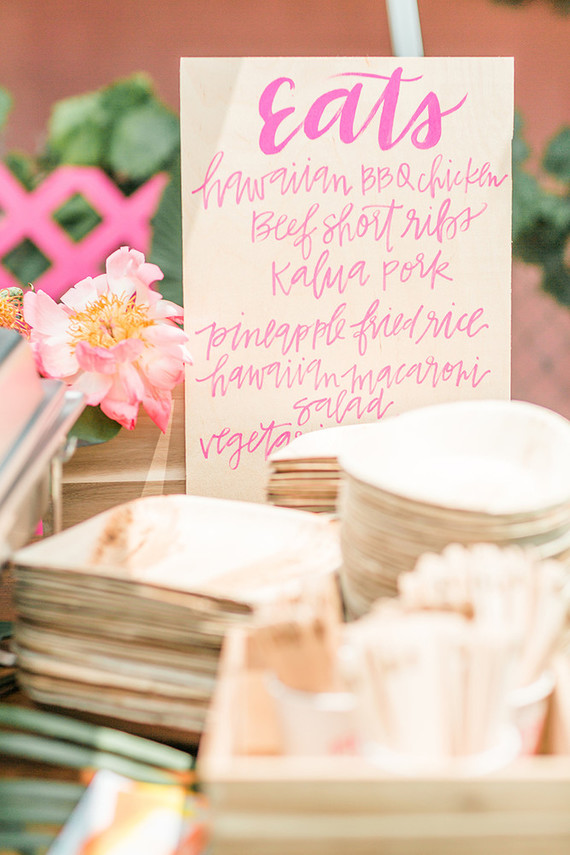 Eats
hawaiian BBQ chicken
Beef short ribs
Kalua pork
pineapple fried rice
hawaiian macaroni
salad